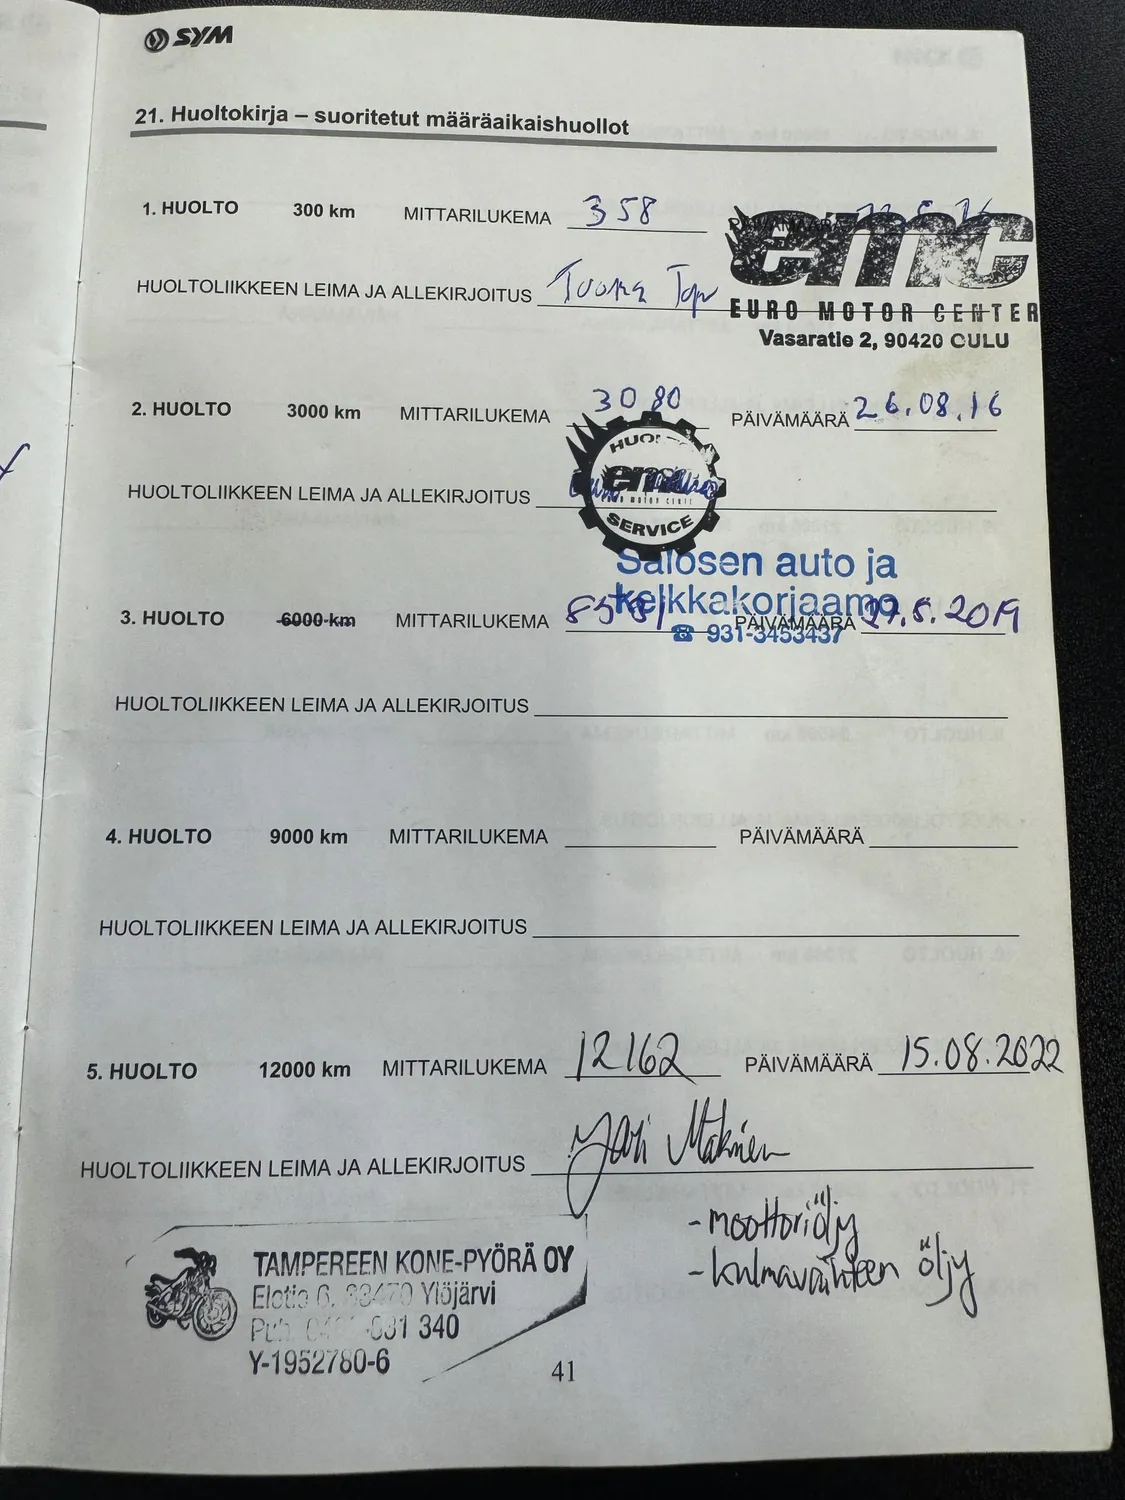 SYM
21. Huoltokirja – suoritetut määräaikaishuollot
1. HUOLTO 300 km MITTARILUKEMA 358 PÄIVÄMÄÄRÄ
emc
HUOLTOLIIKKEEN LEIMA JA ALLEKIRJOITUS
EURO MOTOR CENTER
Vasaratie 2, 90420 OULU
2. HUOLTO 3000 km MITTARILUKEMA 3080 PÄIVÄMÄÄRÄ 26.08.16
HUOLTOLIIKKEEN LEIMA JA ALLEKIRJOITUS
emc
SERVICE
Salosen auto ja
kelkkakorjaamo
3. HUOLTO 6000 km MITTARILUKEMA PÄIVÄMÄÄRÄ
☎ 931-3453437
HUOLTOLIIKKEEN LEIMA JA ALLEKIRJOITUS
4. HUOLTO 9000 km MITTARILUKEMA PÄIVÄMÄÄRÄ
HUOLTOLIIKKEEN LEIMA JA ALLEKIRJOITUS
5. HUOLTO 12000 km MITTARILUKEMA 12162 PÄIVÄMÄÄRÄ 15.08.2022
HUOLTOLIIKKEEN LEIMA JA ALLEKIRJOITUS Jari
-moottoriöljy
-kulmavaihteen öljy
TAMPEREEN KONE-PYÖRÄ OY
Ylöjärvi
340
Y-1952780-6
41